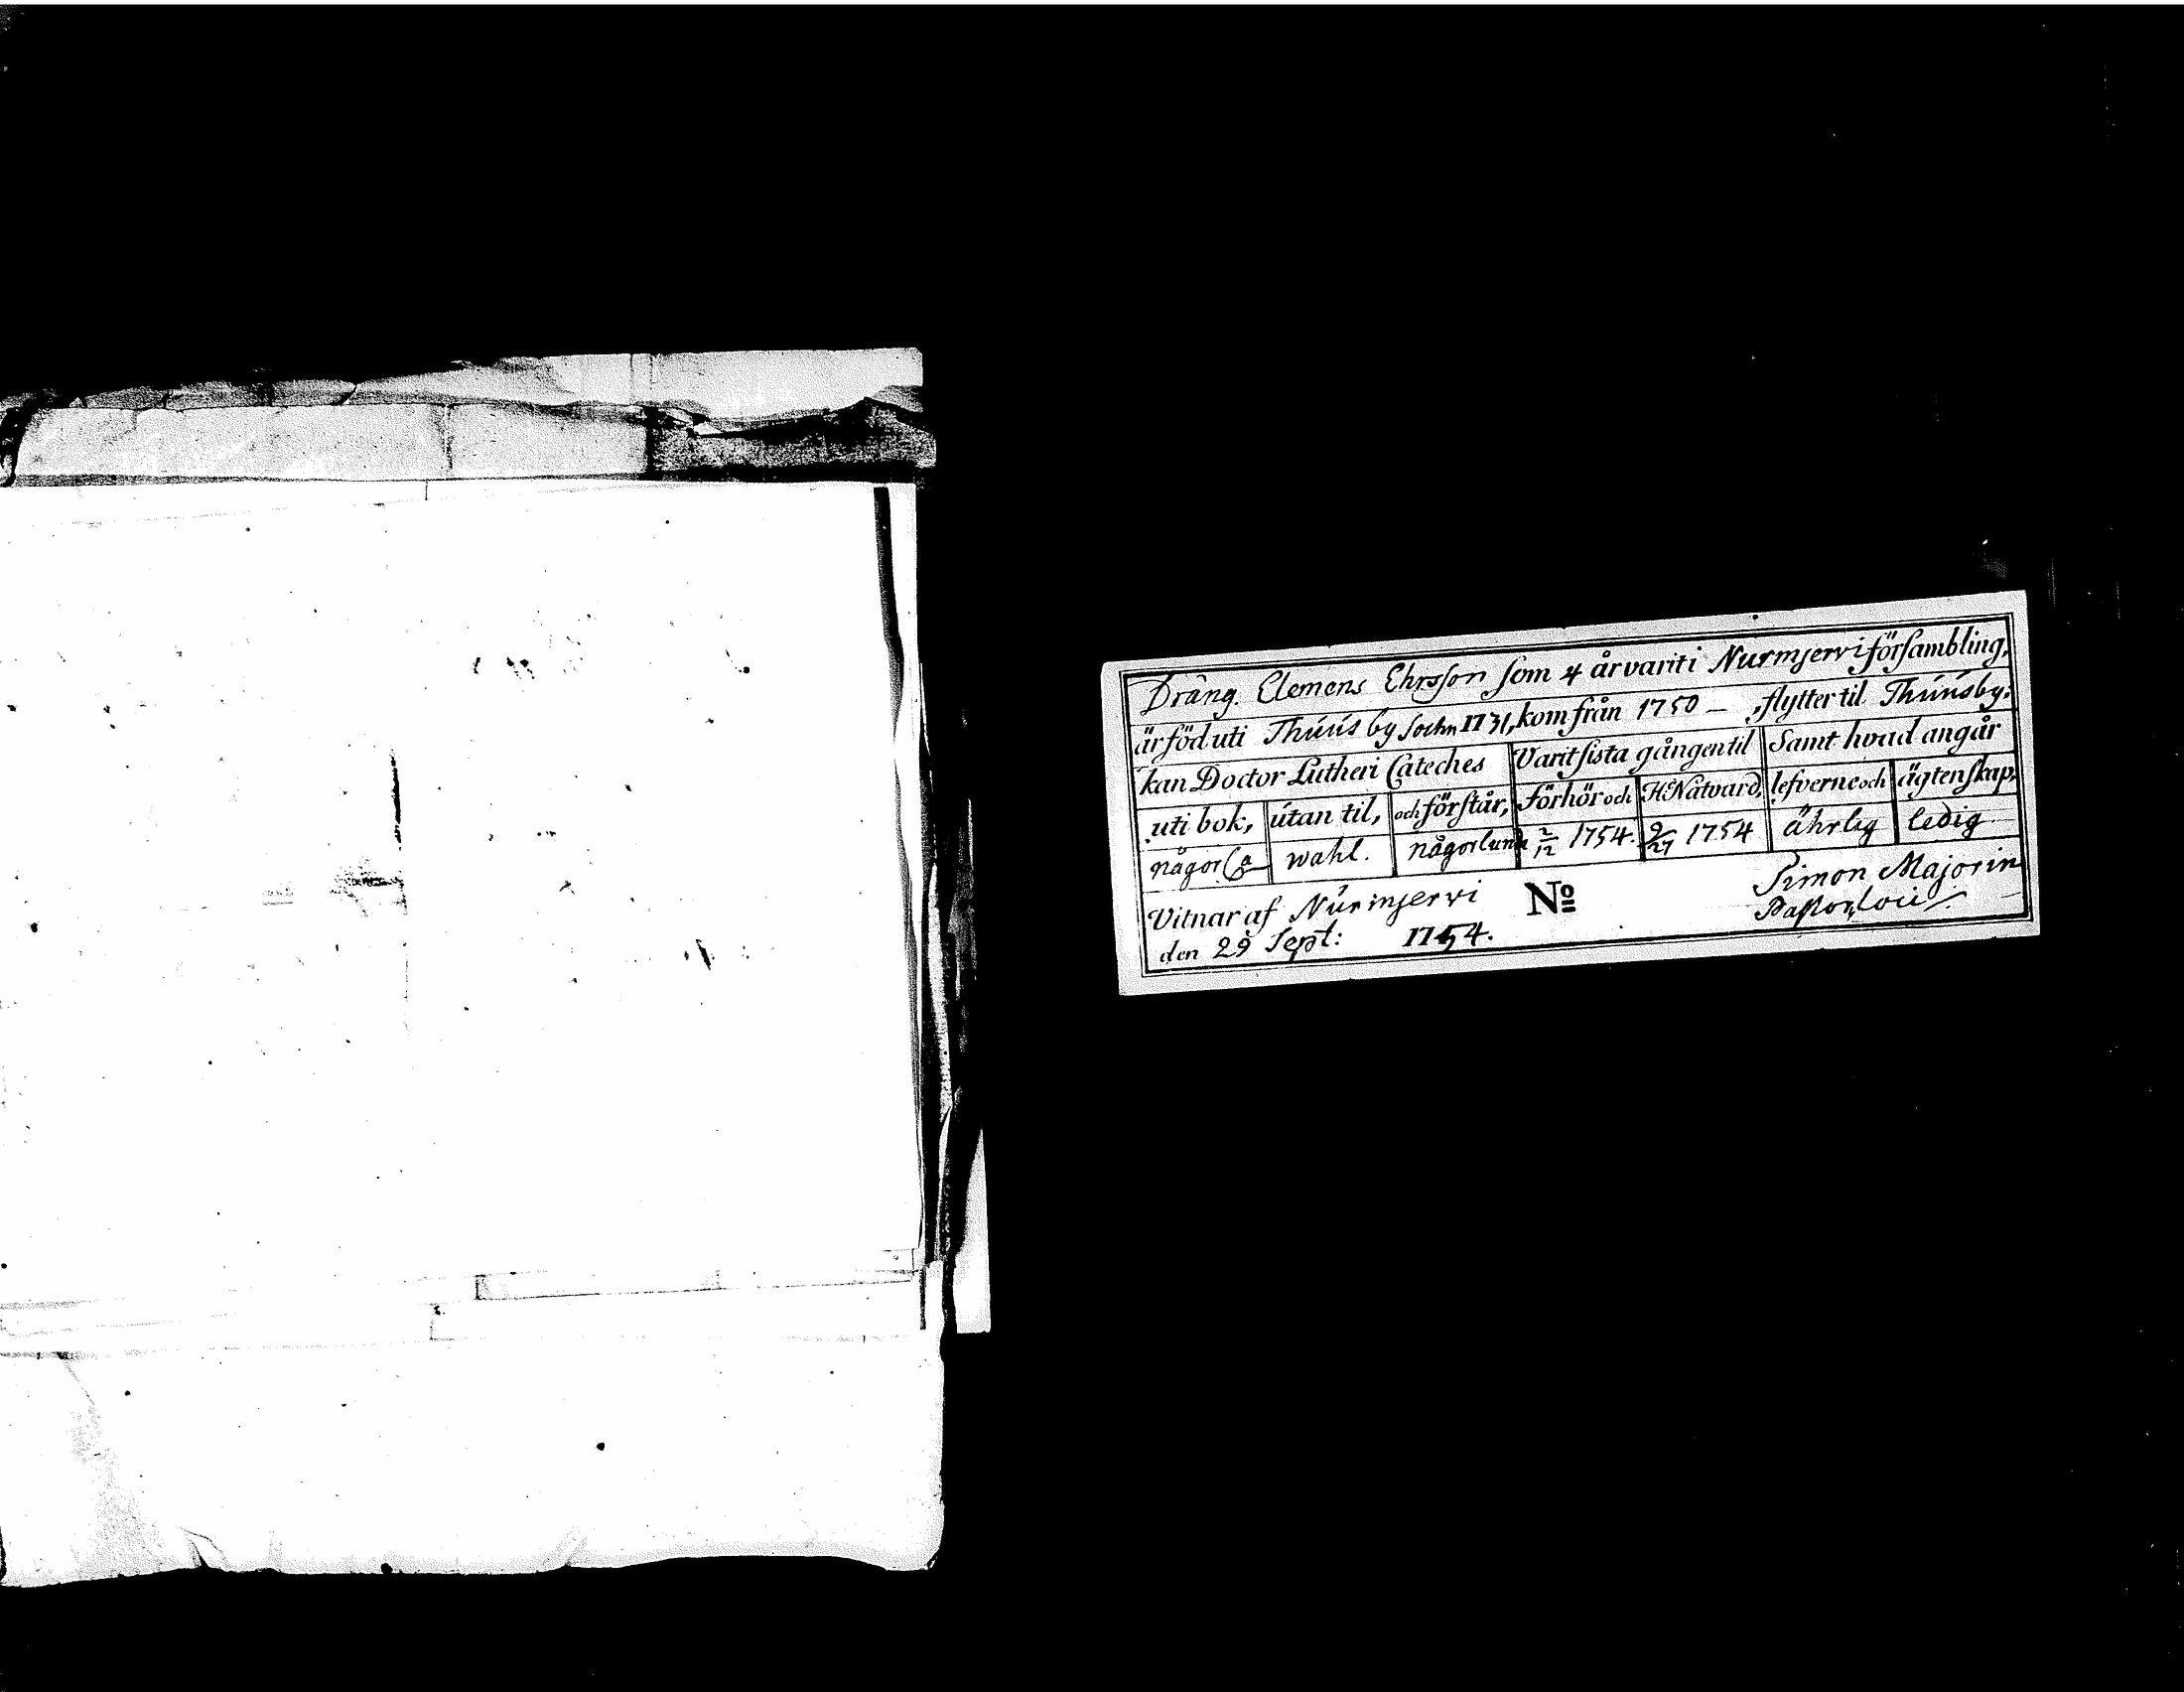 Dräng. Clemens Ehrsson som 4 år varit i Nurmjervi försambling,
är föd uti Thúús by sochn 1731, kom från 1750 – , flytter til Thúúsby:
kan Doctor Lutheri Cateches Varit sista gången til Samt hvad angår
uti bok, útan til, och förstår, Förhör och H. Natvard, lefverne och ägtenskap,
någor wahl. någorlund 2/12 1754. 9/27 1754 ährlig ledig
Vitnar af Núrmjervi No Simon Majorin
den 29 Sept: 1754.